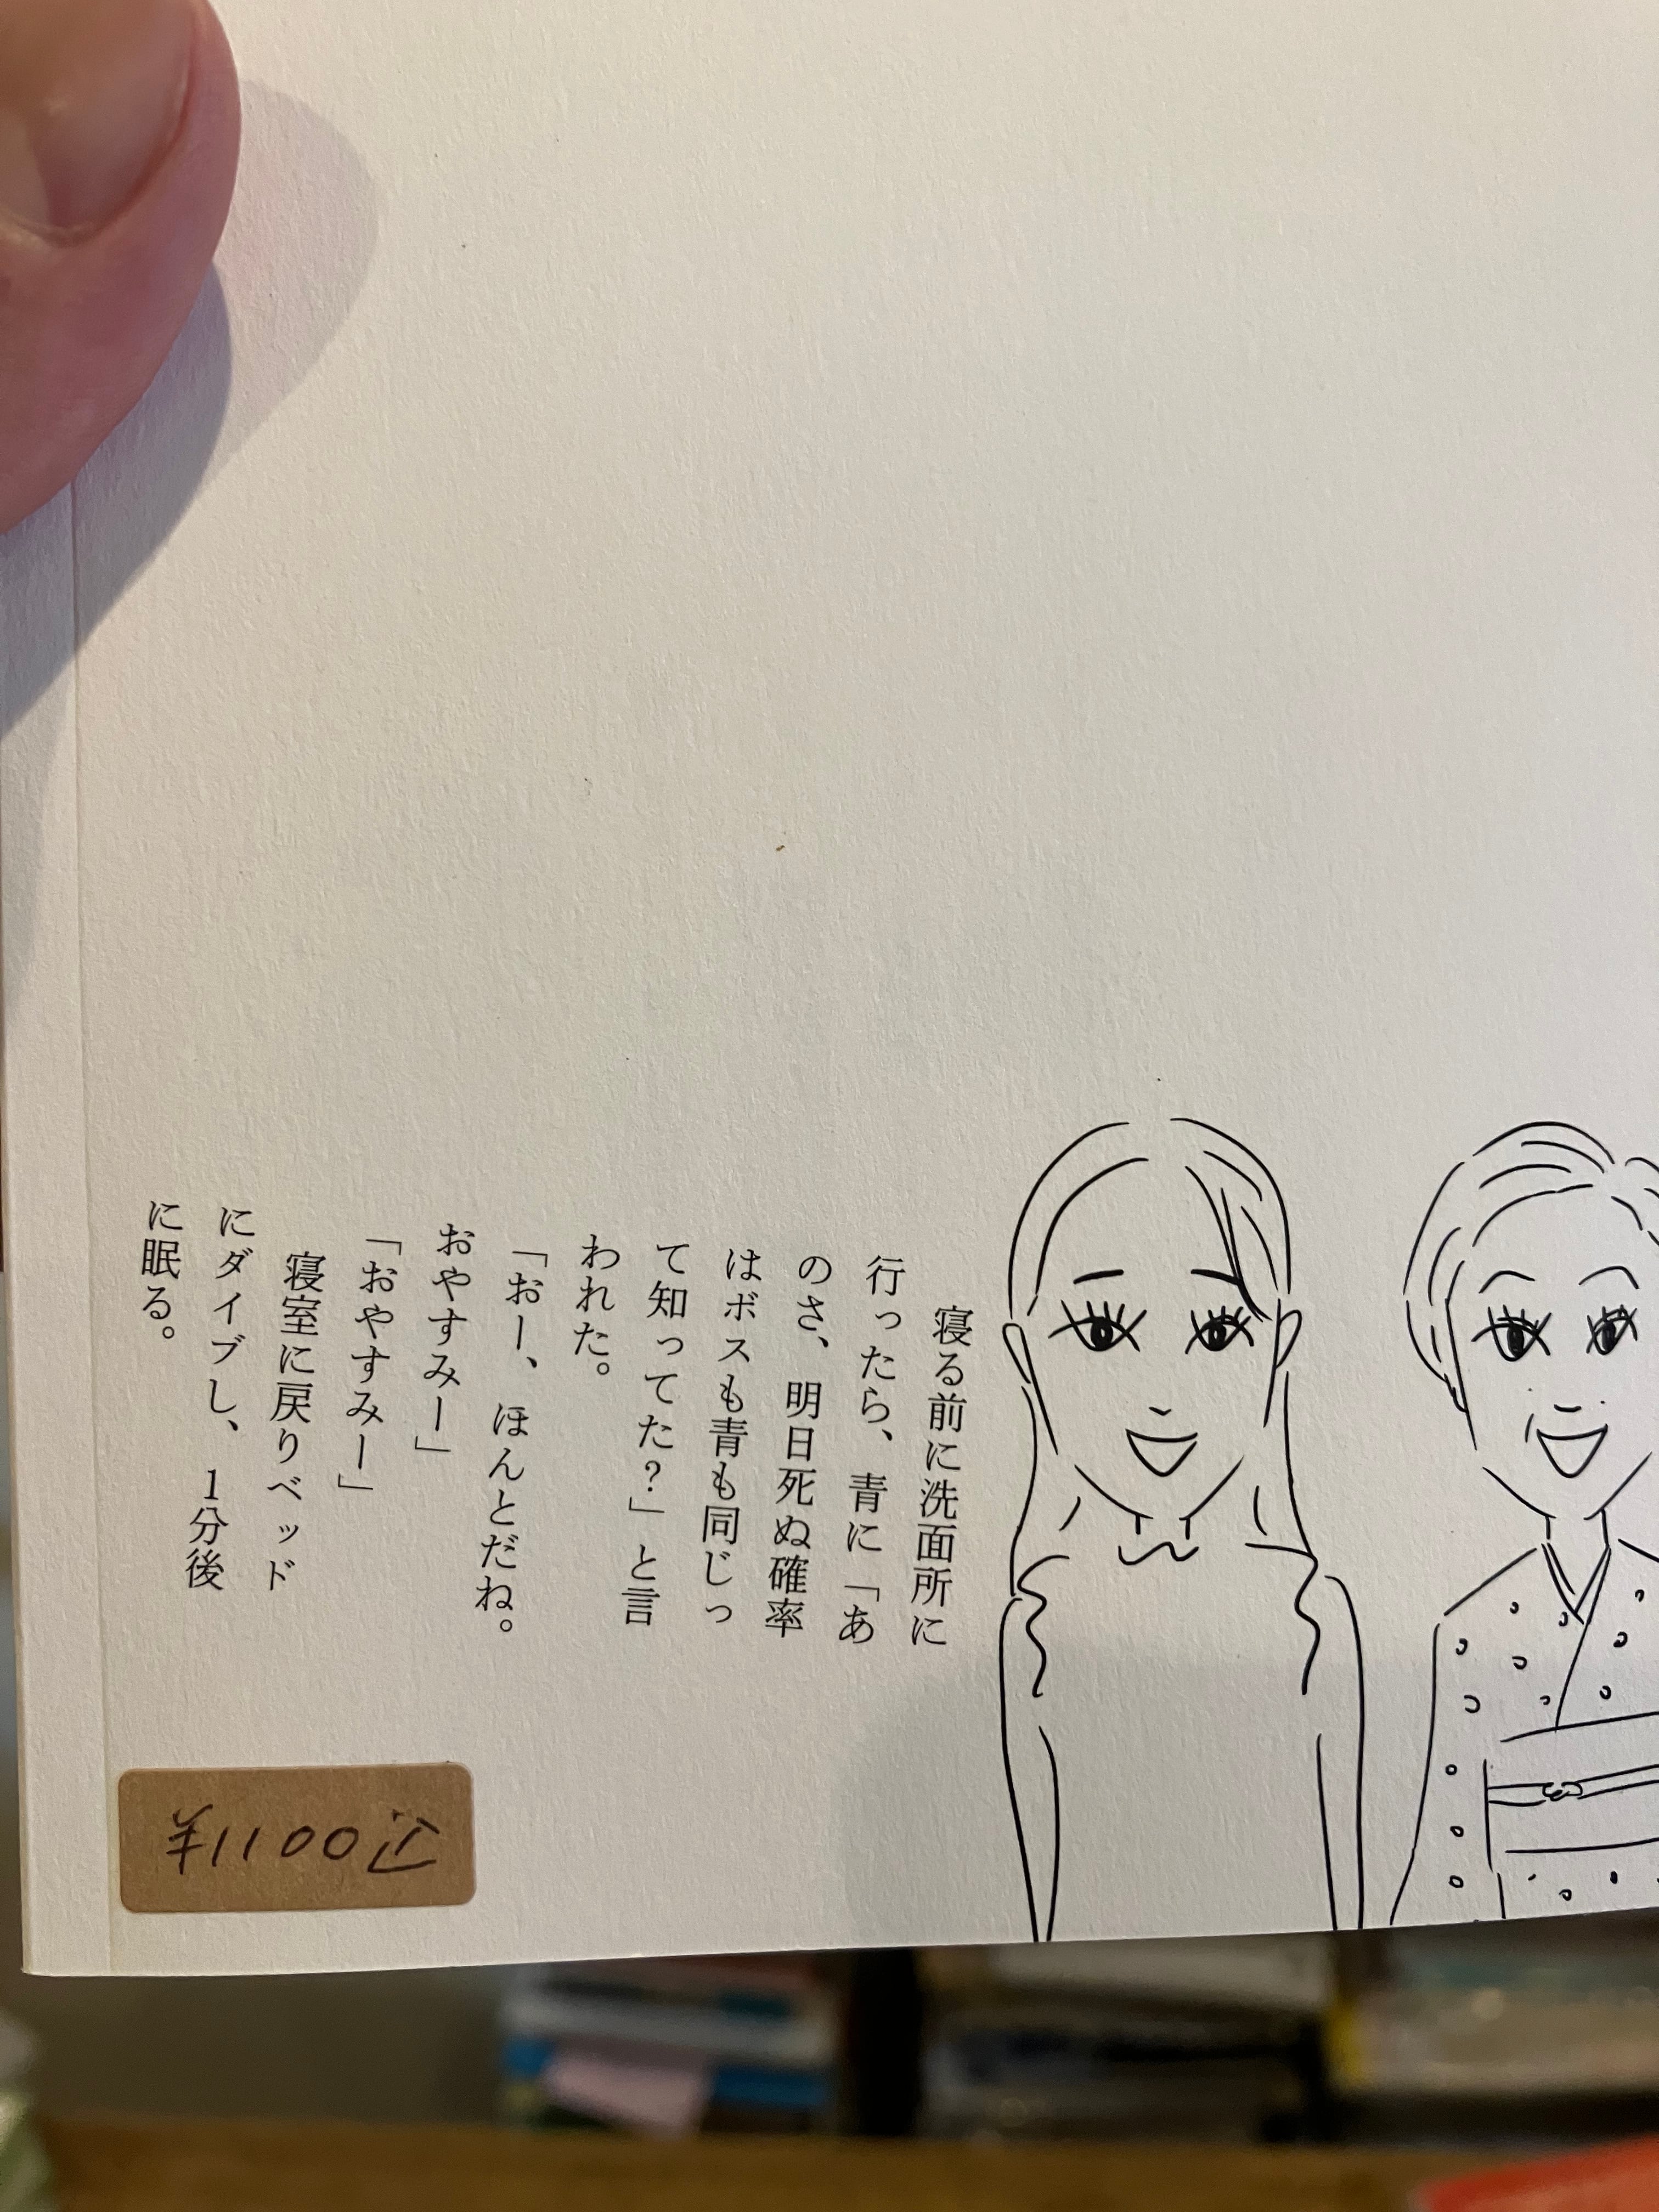 寝る前に洗面所に
行ったら、青に「あ
のさ、明日死ぬ確率
はボスも青も同じっ
て知ってた?」と言
われた。
「おー、ほんとだね。
おやすみー」
「おやすみー」
寝室に戻りベッド
にダイブし、1分後
に眠る。
¥1100込